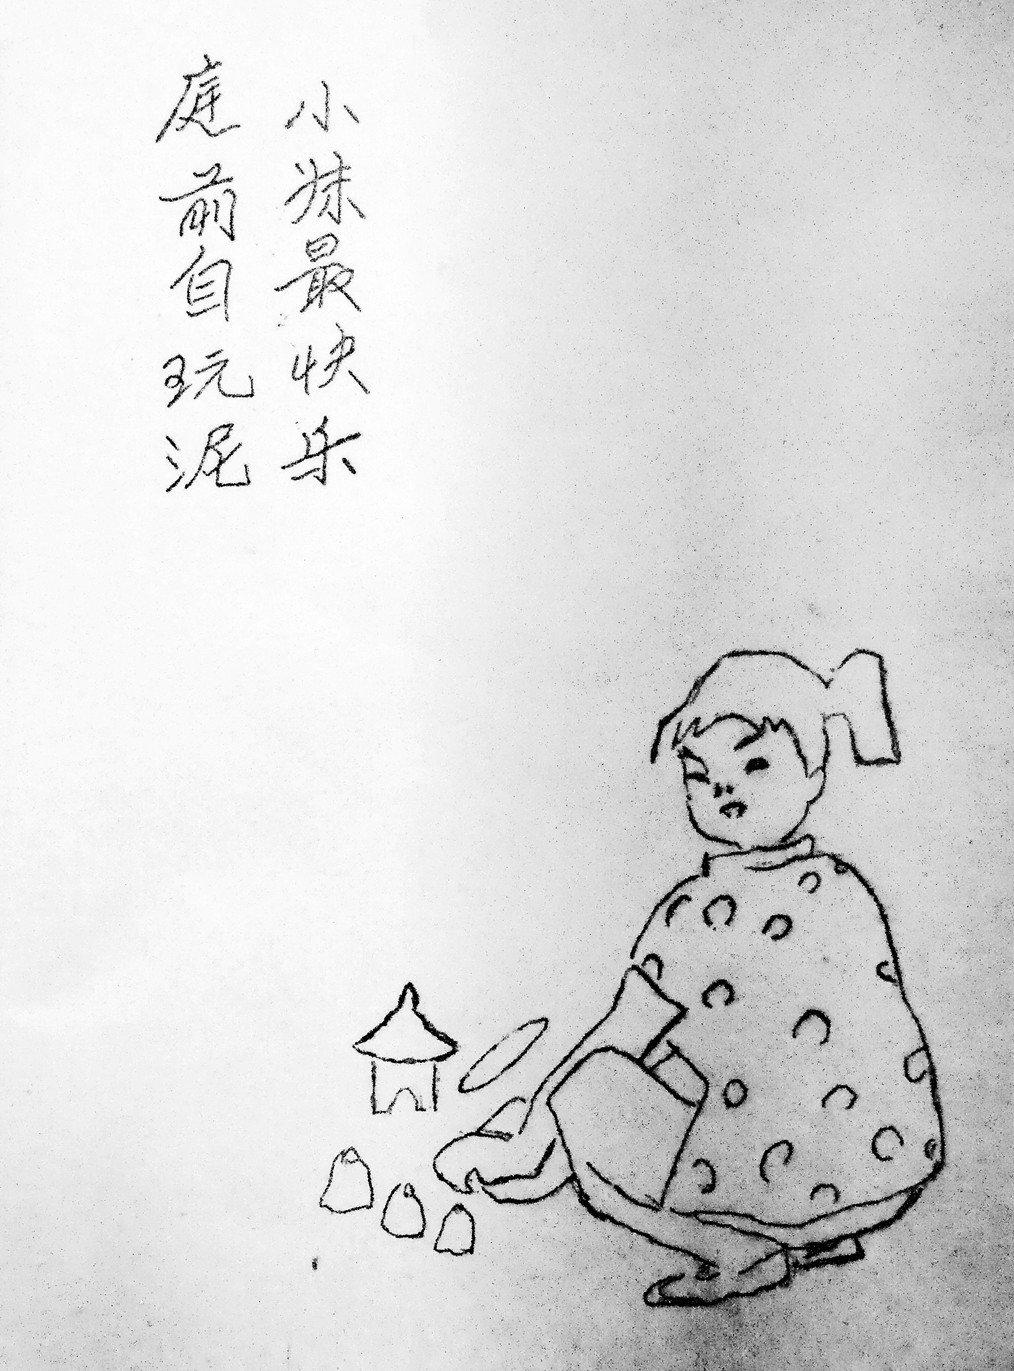 小妹最快乐
庭前自玩泥